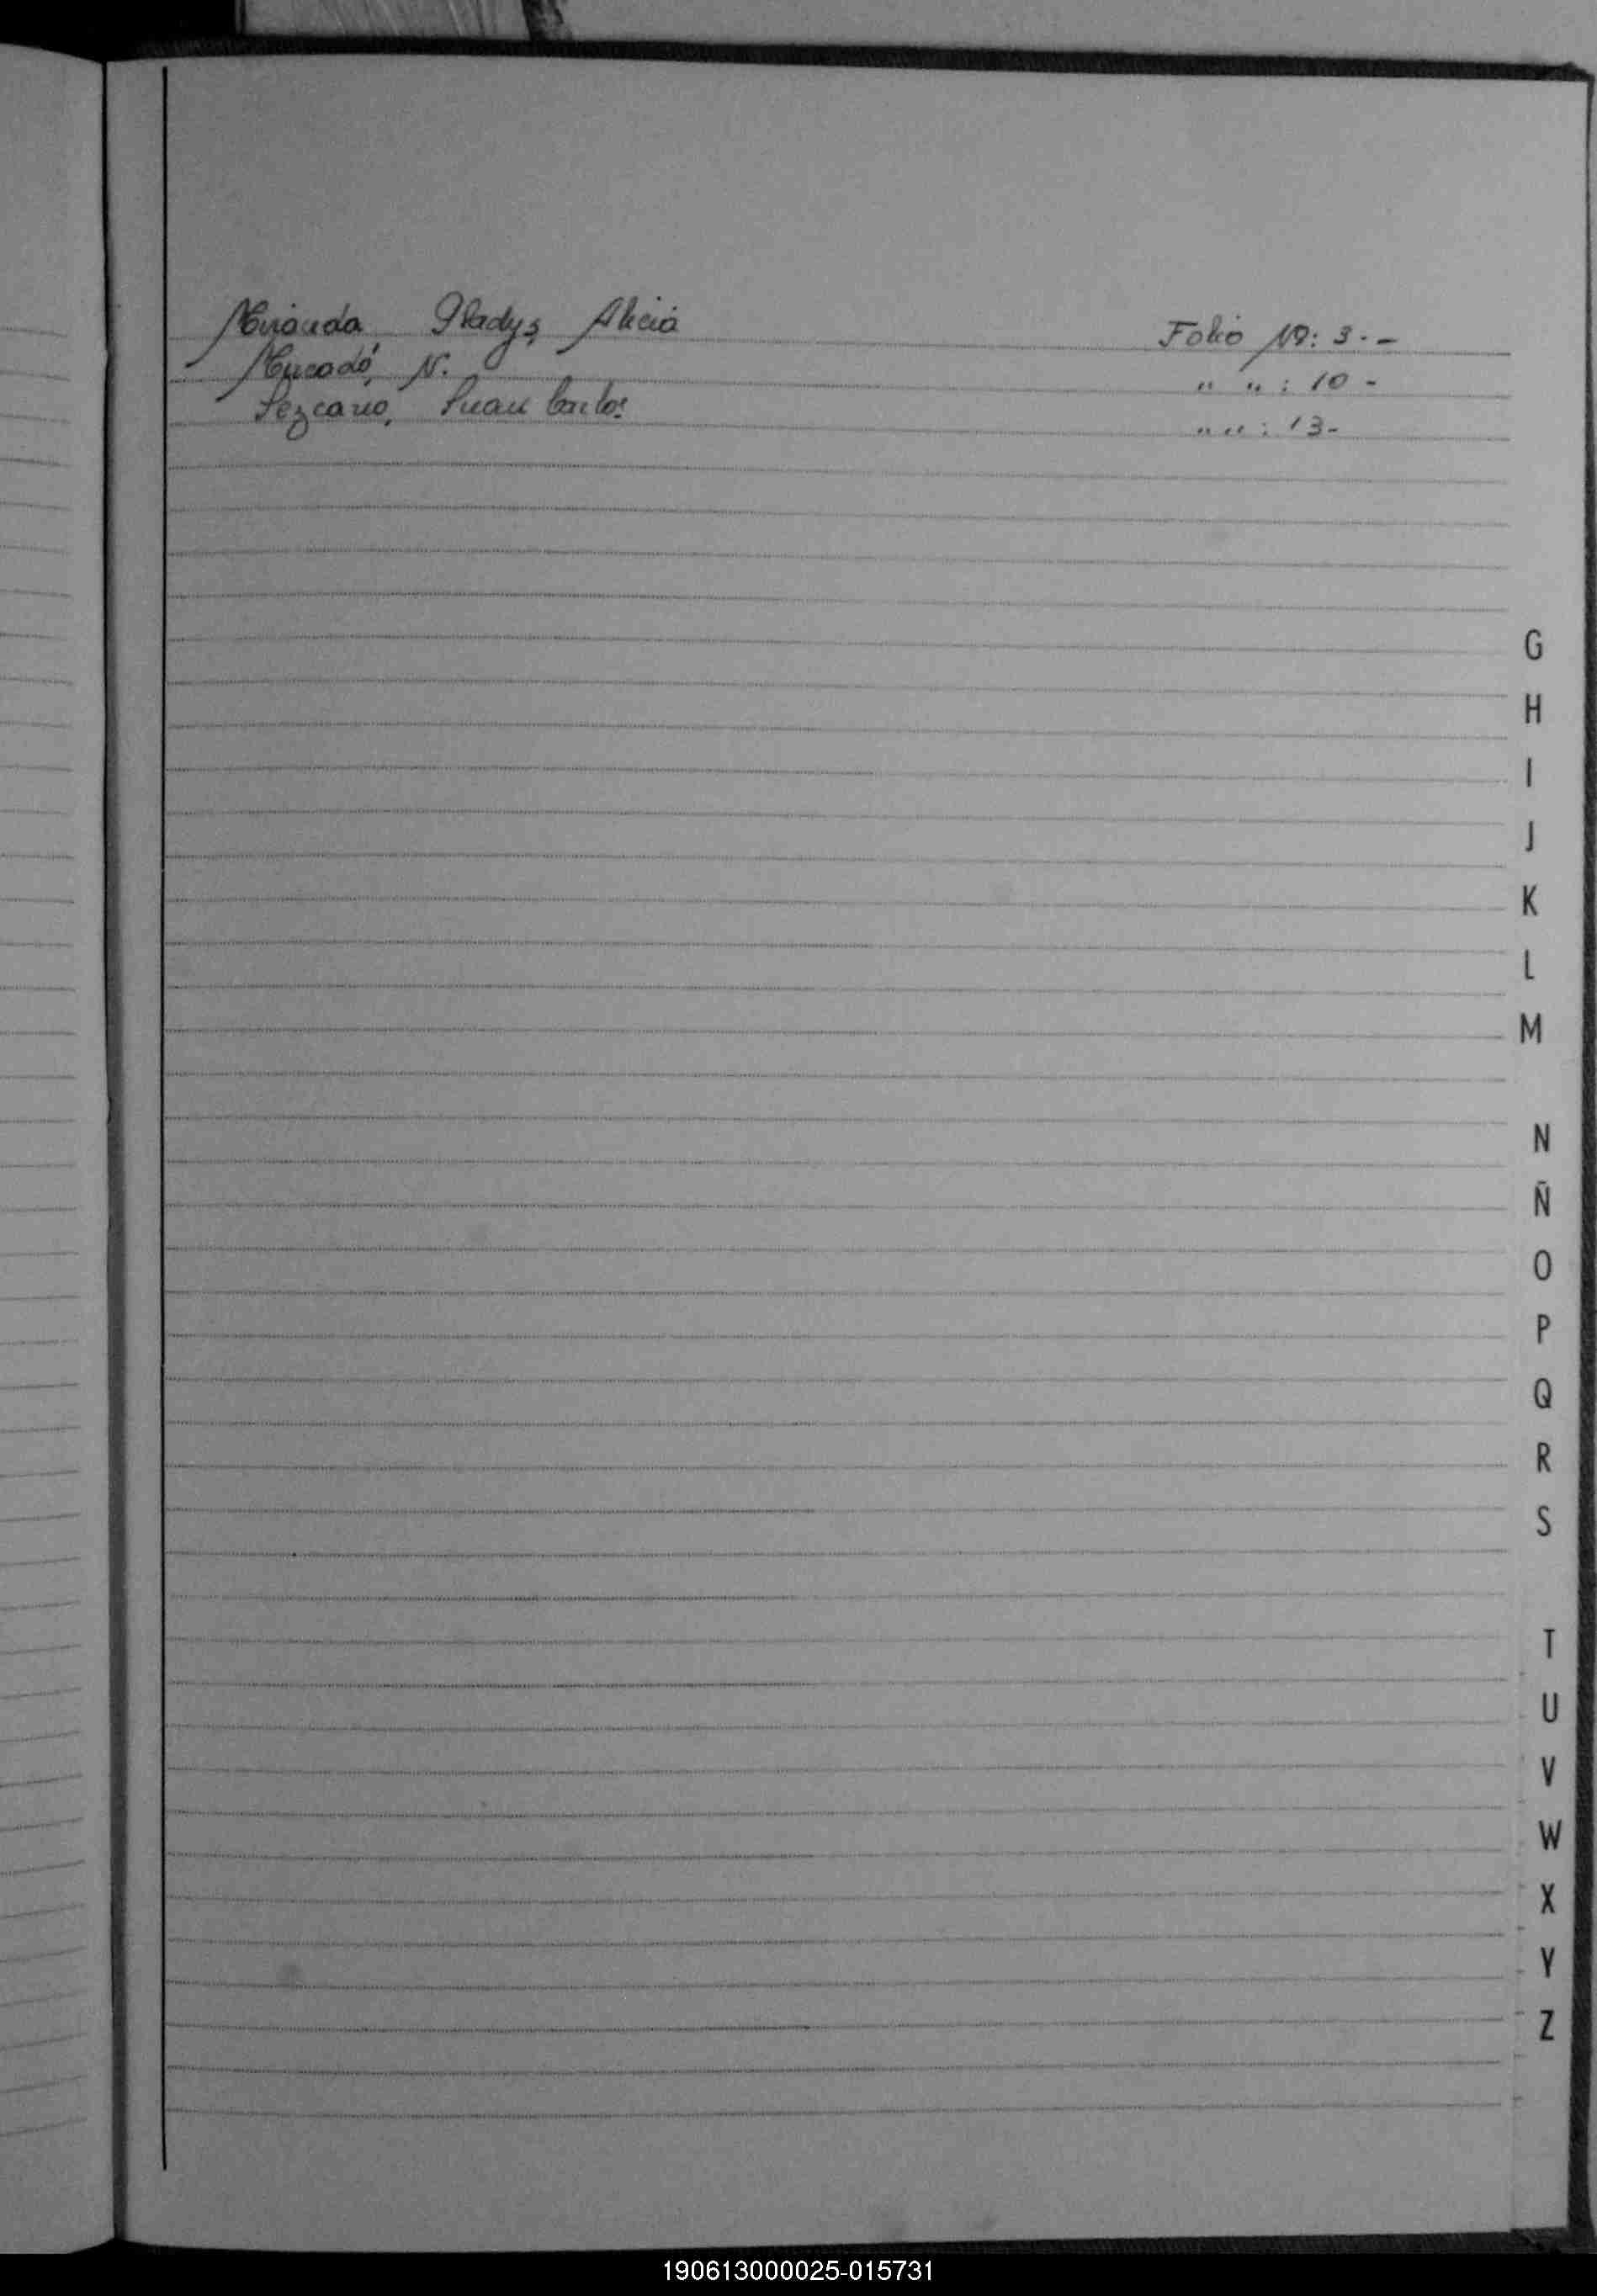 Miranda, Gladys Alicia Folio Nº: 3.-
Mercado, N. " " : 10 -
Lezcano, Juan Carlos " " : 13-
G
H
I
J
K
L
M
N
Ñ
O
P
Q
R
S
T
U
V
W
X
Y
Z
190613000025-015731